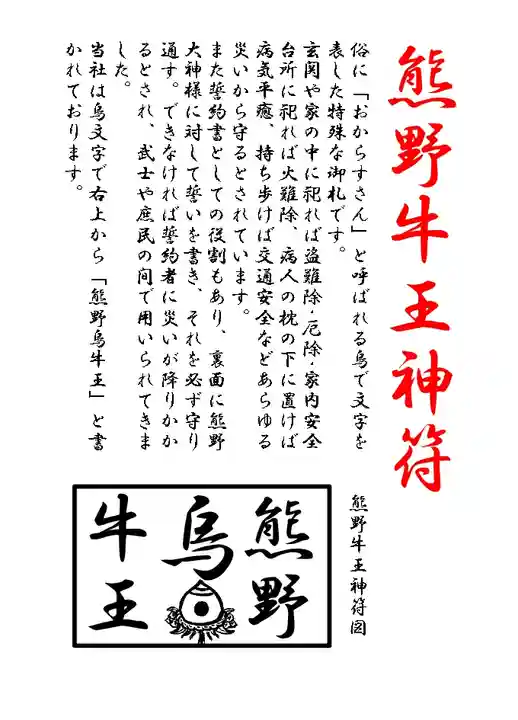 熊野牛王神符
俗に「おからすさん」と呼ばれる烏で文字を
表した特殊な御札です。
玄関や家の中に祀れば盗難除・厄除・家内安全
台所に祀れば火難除、病人の枕の下に置けば
病気平癒、持ち歩けば交通安全などあらゆる
災いから守るとされています。
また誓約書としての役割もあり、裏面に熊野
大神様に対して誓いを書き、それを必ず守り
通す。できなければ誓約者に災いが降りかか
るとされ、武士や庶民の間で用いられてきま
した。
当社は烏文字で右上から「熊野烏牛王」と書
かれております。
熊野牛王神符図
熊野
烏
牛王